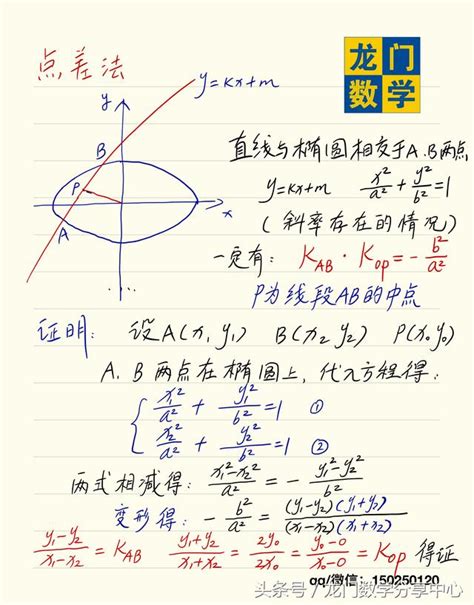 点差法
y=kx+m
龙门
数学
y
B
P
A
x
直线与椭圆相交于A.B两点
y=kx+m x²/a²+y²/b²=1
(斜率存在的情况)
一定有: K_AB·K_OP=-b²/a²
P为线段AB的中点
证明: 设A(x₁ y₁) B(x₂ y₂) P(x₀ y₀)
A、B两点在椭圆上,代入方程得:
x₁²/a²+y₁²/b²=1 ①
x₂²/a²+y₂²/b²=1 ②
两式相减得: (x₁²-x₂²)/a²=-(y₁²-y₂²)/b²
变形得: -b²/a²=(y₁-y₂)(y₁+y₂)/(x₁-x₂)(x₁+x₂)
(y₁-y₂)/(x₁-x₂)=K_AB (y₁+y₂)/(x₁+x₂)=2y₀/2x₀=(y₀-0)/(x₀-0)=K_OP 得证
qq/微信: 150250120
头条号/龙门数学分享中心